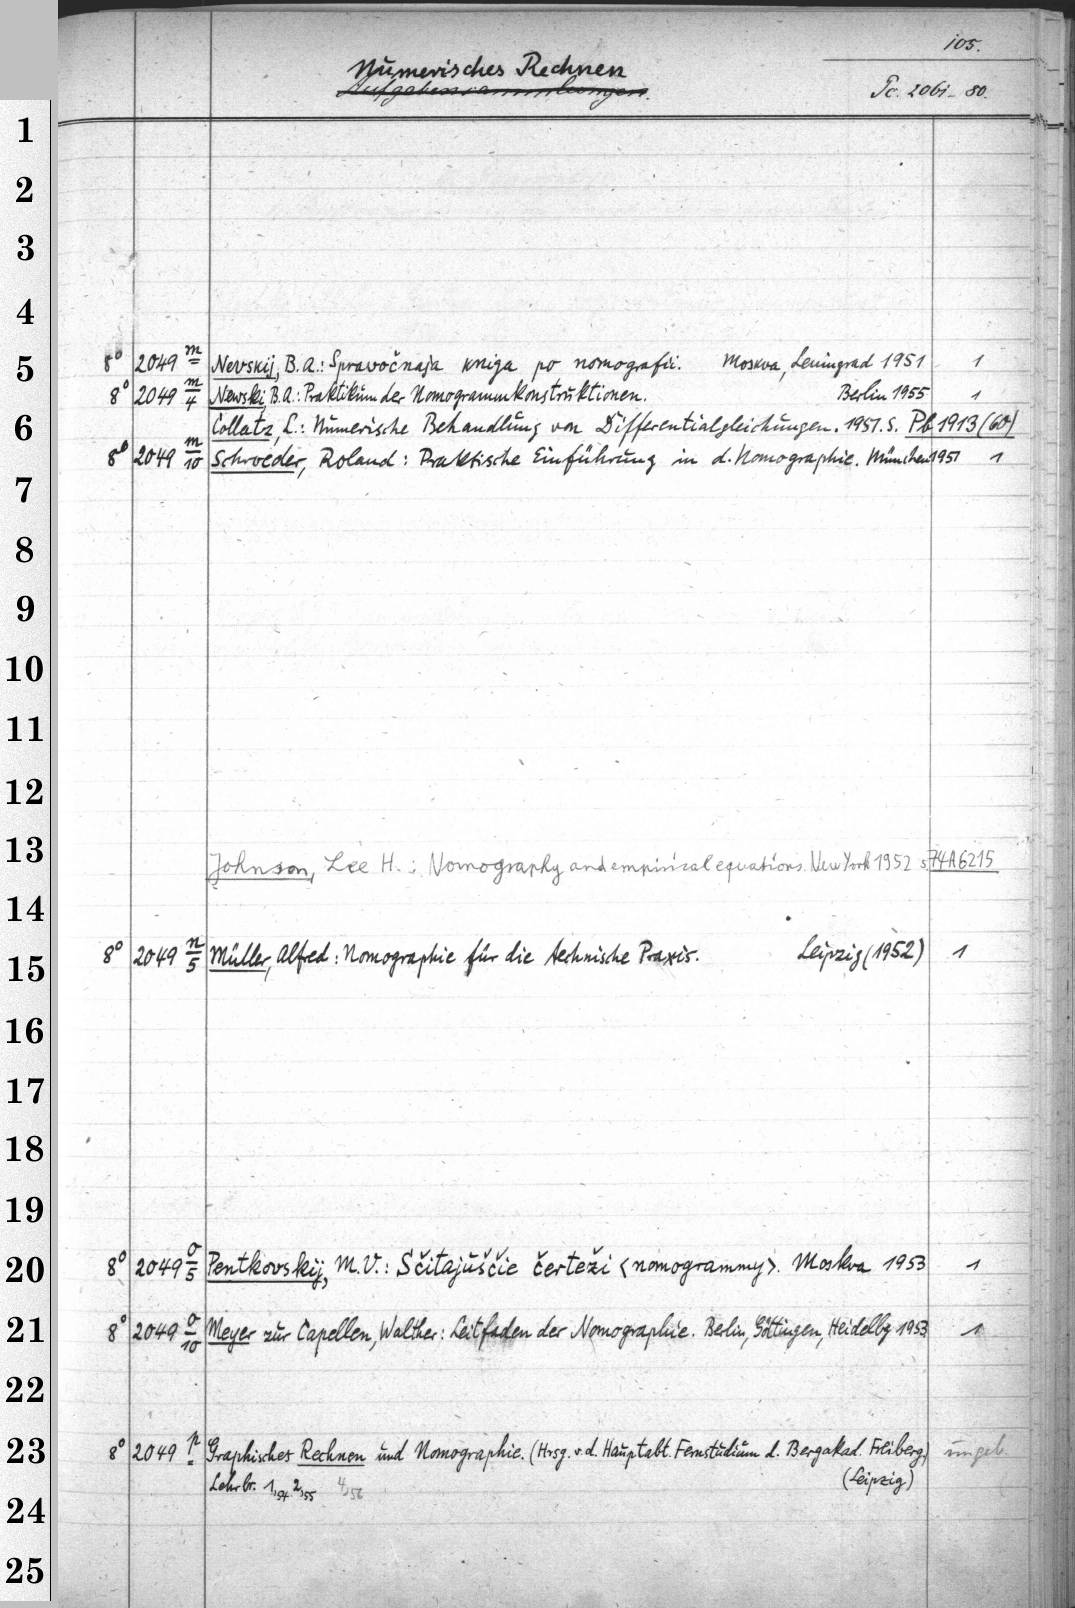 105.
Numerisches Rechnen
Aufgabensammlungen.
Tc. 2061-80.
1
2
3
4
5
8° 2049 m Nevskij, B.A.: Spravočnaja kniga po nomografii. Moskva, Leningrad 1951 1
8° 2049 m/4 Newski, B.A.: Praktikum der Nomogrammkonstruktionen. Berlin 1955 1
6
Collatz, L.: Numerische Behandlung von Differentialgleichungen. 1951. S. Pb 1913 (60)
8° 2049 m/10 Schroeder, Roland: Praktische Einführung in d. Nomographie. München 1951 1
7
8
9
10
11
12
13
Johnson, Lee H.: Nomography and empirical equations. New York 1952 s. 74A6215
14
8° 2049 n/5 Müller, Alfred: Nomographie für die technische Praxis. Leipzig (1952) 1
15
16
17
18
19
20
8° 2049 o/5 Pentkovskij, M.V.: Sčitajuščie čerteži <nomogrammy>. Moskva 1953 1
21
8° 2049 o/10 Meyer zur Capellen, Walther: Leitfaden der Nomographie. Berlin, Göttingen, Heidelbg 1953 1
22
23
8° 2049 p Graphisches Rechnen und Nomographie. (Hrsg. v. d. Hauptabt. Fernstudium d. Bergakad. Freiberg) ungeb.
Lehrbr. 1,54 2,55 4,56 (Leipzig)
24
25